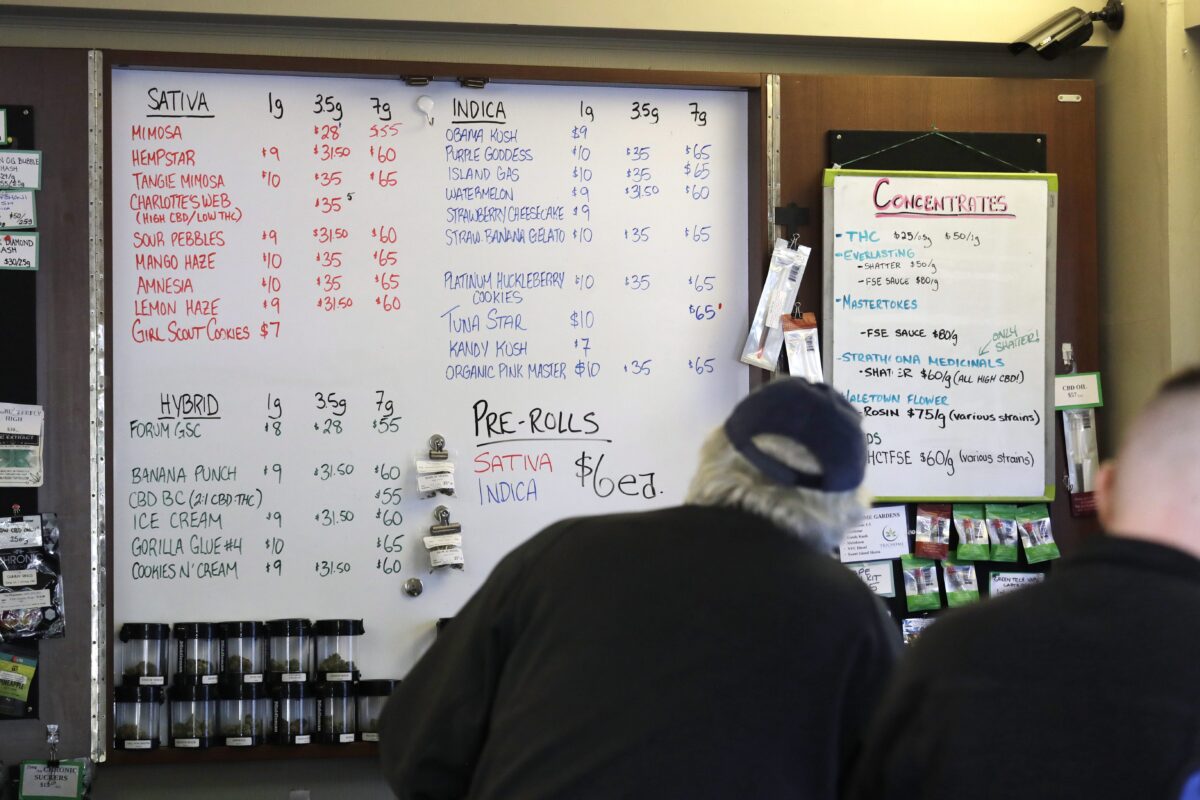 SATIVA 1g 3.5g 7g
MIMOSA $28 $55
HEMPSTAR $9 $31.50 $60
TANGIE MIMOSA $10 $35 $65
CHARLOTTE'S WEB $35
(HIGH CBD/LOW THC)
SOUR PEBBLES $9 $31.50 $60
MANGO HAZE $10 $35 $65
AMNESIA $10 $35 $65
LEMON HAZE $9 $31.50 $60
GIRL SCOUT COOKIES $7
HYBRID 1g 3.5g 7g
FORUM GSC $8 $28 $55
BANANA PUNCH $9 $31.50 $60
CBD BC (2:1 CBD:THC) $55
ICE CREAM $9 $31.50 $60
GORILLA GLUE #4 $10 $65
COOKIES N' CREAM $9 $31.50 $60
INDICA 1g 3.5g 7g
OBAMA KUSH $9
PURPLE GODDESS $10 $35 $65
ISLAND GAS $10 $35 $65
WATERMELON $9 $31.50 $60
STRAWBERRY CHEESECAKE $9
STRAW. BANANA GELATO $10 $35 $65
PLATINUM HUCKLEBERRY $10 $35 $65
COOKIES
$65
TUNA STAR $10
KANDY KUSH $7
ORGANIC PINK MASTER $10 $35 $65
PRE-ROLLS
SATIVA
INDICA
$6ea.
CONCENTRATES
- THC $25/.5g $50/1g
- EVERLASTING
- SHATTER $50/g
- FSE SAUCE $80/g
- MASTERTOKES
- FSE SAUCE $80/g
ONLY
SHATTER!
- STRATHCONA MEDICINALS
- SHATTER $60/g (ALL HIGH CBD!)
WALETOWN FLOWER
- ROSIN $75/g (various strains)
HCTFSE $60/g (various strains)
CBD OIL
CHRONIC
SUCKERS